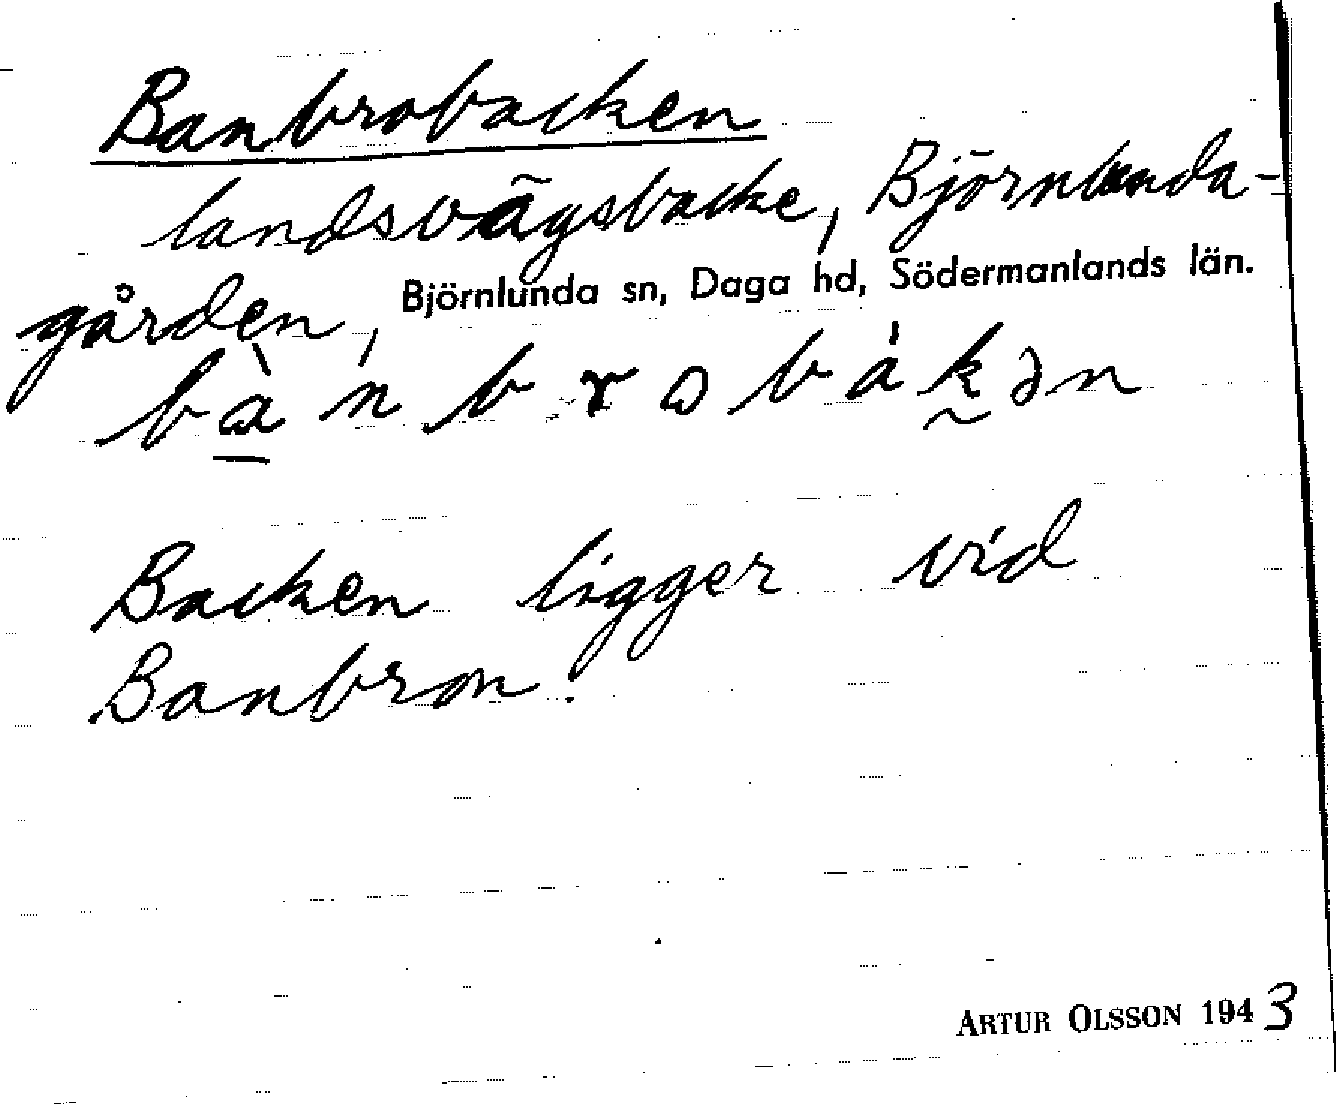 Banbrobacken
landsvägsbacke, Björnlunda-
gården, Björnlunda sn, Daga hd, Södermanlands län.
bànbrobákən
Backen ligger vid
Banbron.
ARTUR OLSSON 1943